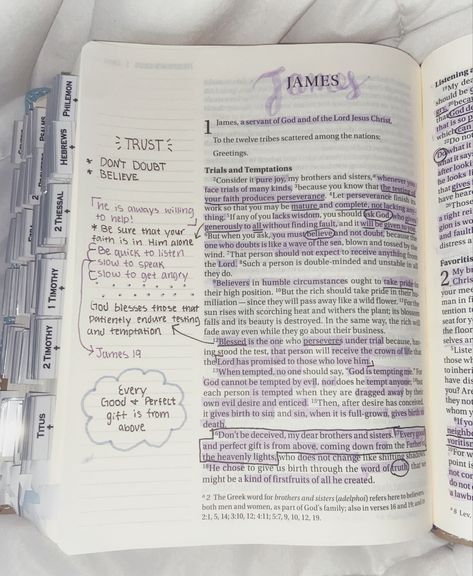 JAMES
James
1 James, a servant of God and of the Lord Jesus Christ,
To the twelve tribes scattered among the nations:
Greetings.
Trials and Temptations
2Consider it pure joy, my brothers and sisters, a whenever you
face trials of many kinds, 3because you know that the testing of
your faith produces perseverance. 4Let perseverance finish its
work so that you may be mature and complete, not lacking any-
thing. 5If any of you lacks wisdom, you should ask God, who gives
generously to all without finding fault, and it will be given to you.
6But when you ask, you must believe and not doubt, because the
one who doubts is like a wave of the sea, blown and tossed by the
wind. 7That person should not expect to receive anything from
the Lord. 8Such a person is double-minded and unstable in all
they do.
9Believers in humble circumstances ought to take pride in
their high position. 10But the rich should take pride in their hu-
miliation—since they will pass away like a wild flower. 11For the
sun rises with scorching heat and withers the plant; its blossom
falls and its beauty is destroyed. In the same way, the rich will
fade away even while they go about their business.
12Blessed is the one who perseveres under trial because, hav-
ing stood the test, that person will receive the crown of life that
the Lord has promised to those who love him.
13When tempted, no one should say, "God is tempting me." For
God cannot be tempted by evil, nor does he tempt anyone; 14but
each person is tempted when they are dragged away by their
own evil desire and enticed. 15Then, after desire has conceived,
it gives birth to sin; and sin, when it is full-grown, gives birth to
death.
16Don't be deceived, my dear brothers and sisters. 17Every good
and perfect gift is from above, coming down from the Father of
the heavenly lights, who does not change like shifting shadows.
18He chose to give us birth through the word of truth, that we
might be a kind of firstfruits of all he created.
a 2 The Greek word for brothers and sisters (adelphoi) refers here to believers,
both men and women, as part of God's family; also in verses 16 and 19; and in
2:1, 5, 14; 3:10, 12; 4:11; 5:7, 9, 10, 12, 19.
TRUST
* DON'T DOUBT
* BELIEVE
He is always willing
to help!
* Be sure that your
faith is in Him alone
Be quick to listen
slow to speak
slow to get angry
God blesses those that
patiently endure testing
and temptation
James 19
Every
Good & Perfect
gift is from
above
PHILEMON
HEBREWS
2 THESSAL
1 TIMOTHY
2 TIMOTHY
TITUS
PSALMS
Listening a
19My dea
should be
Do not
Favoritis
2 My b